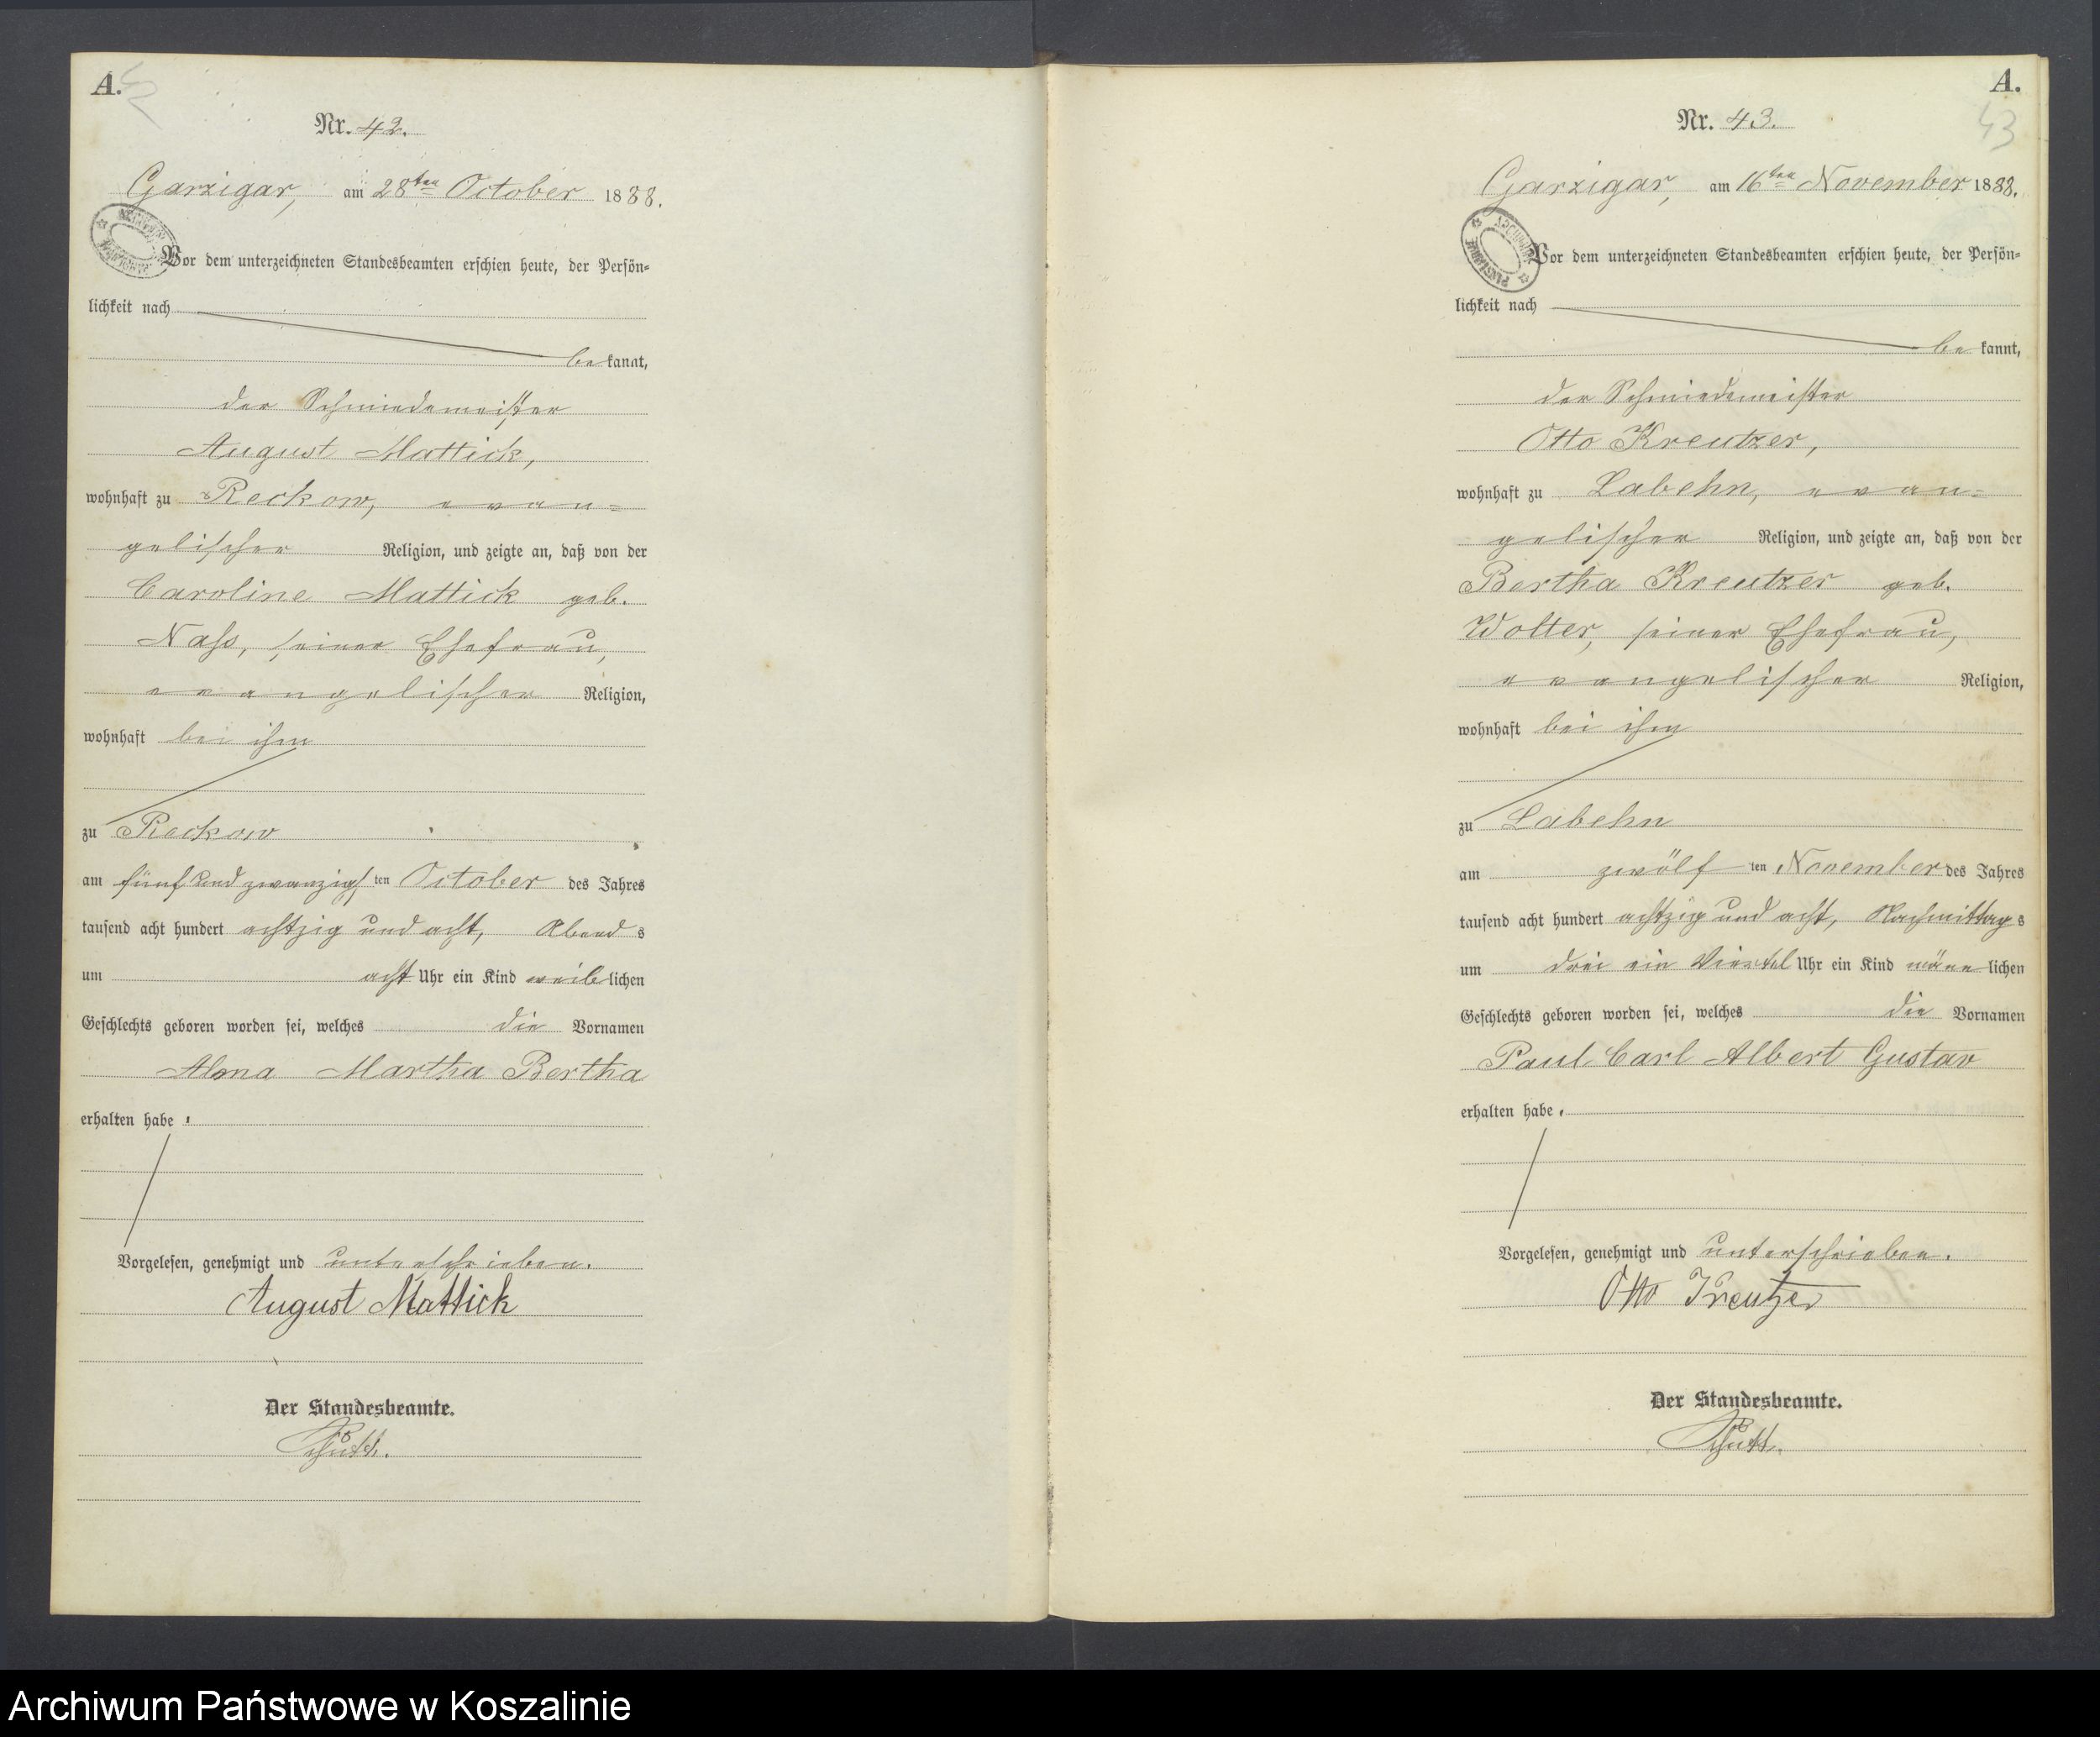 A.
42
Nr. 42.
Garzigar, am 28ten October 1888.
Vor dem unterzeichneten Standesbeamten erschien heute, der Persön-
lichkeit nach
bekannt,
der Schmiedemeister
August Mattick,
wohnhaft zu Reckow, evan-
gelischer Religion, und zeigte an, daß von der
Caroline Mattick geb.
Nass, seiner Ehefrau,
evangelischer Religion,
wohnhaft bei ihm
zu Reckow
am fünf und zwanzigsten October des Jahres
tausend acht hundert achtzig und acht, Abends
um acht Uhr ein Kind weiblichen
Geschlechts geboren worden sei, welches die Vornamen
Alma Martha Bertha
erhalten habe.
Vorgelesen, genehmigt und unterschrieben.
August Mattick
Der Standesbeamte.
A.
43
Nr. 43.
Garzigar, am 16ten November 1888.
Vor dem unterzeichneten Standesbeamten erschien heute, der Persön-
lichkeit nach
bekannt,
der Schmiedemeister
Otto Kreutzer,
wohnhaft zu Labehn, evan-
gelischer Religion, und zeigte an, daß von der
Bertha Kreutzer geb.
Wolter, seiner Ehefrau,
evangelischer Religion,
wohnhaft bei ihm
zu Labehn
am zwölften November des Jahres
tausend acht hundert achtzig und acht, Nachmittags
um drei ein Viertel Uhr ein Kind männlichen
Geschlechts geboren worden sei, welches die Vornamen
Paul Carl Albert Gustav
erhalten habe.
Vorgelesen, genehmigt und unterschrieben.
Otto Kreutzer
Der Standesbeamte.
Archiwum Państwowe w Koszalinie